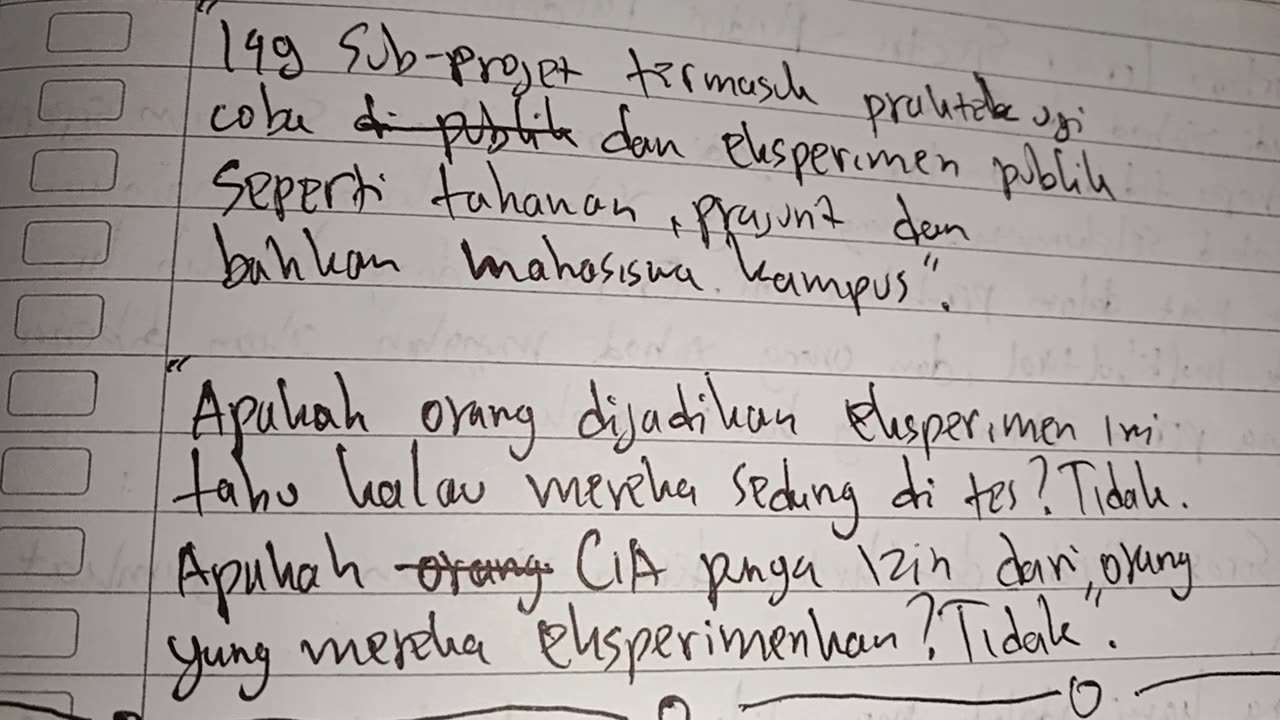 "149 Sub-projet termasuk praktek uji
coba di publik dan eksperimen publik
seperti tahanan, prajurit dan
bahkan mahasiswa kampus".
"Apakah orang dijadikan eksperimen ini
tahu kalau mereka sedang di tes? Tidak.
Apakah orang CIA punya izin dari orang
yang mereka eksperimenkan? Tidak".